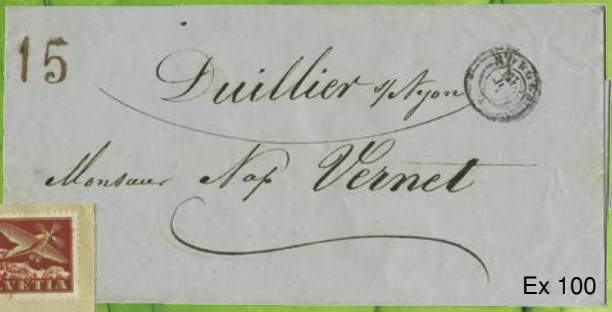 15
Duillier s/Nyon
MORGES
Monsieur Nap Vernet
HELVETIA
Ex 100